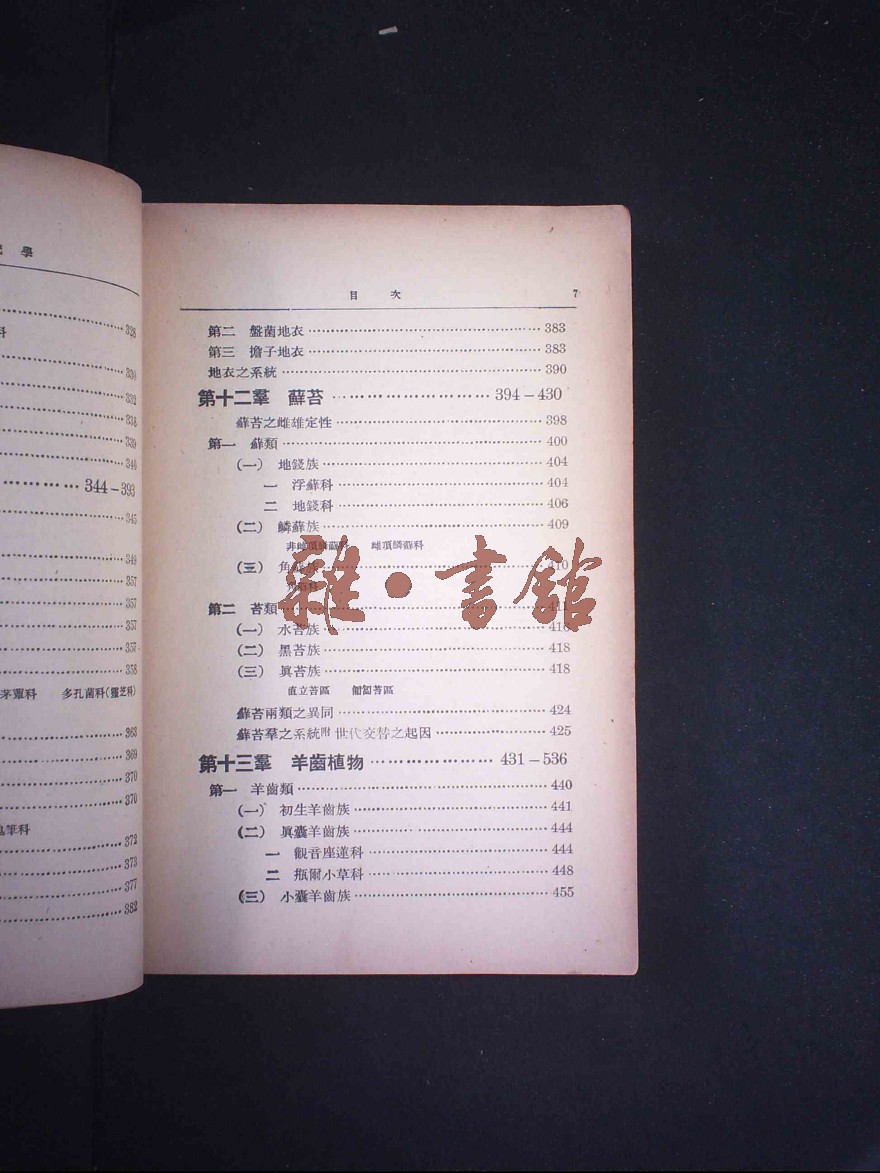 學
328
科
330
332
338
339
340
344-393
345
349
357
357
357
357
358
茅蕈科 多孔菌科(靈芝科)
363
369
370
370
筆科
372
373
377
382
目 次 7
第二 盤菌地衣 383
第三 擔子地衣 383
地衣之系統 390
第十二羣 蘚苔 394-430
蘚苔之雌雄定性 398
第一 蘚類 400
(一) 地錢族 404
一 浮蘚科 404
二 地錢科 406
(二) 鱗蘚族 409
雌頂鱗蘚科
(三) 角蘚族 410
第二 苔類 411
(一) 水苔族 418
(二) 黑苔族 418
(三) 眞苔族 418
直立苔區 匍匐苔區
蘚苔兩類之異同 424
蘚苔羣之系統附世代交替之起因 425
第十三羣 羊齒植物 431-536
第一 羊齒類 440
(一) 初生羊齒族 441
(二) 眞囊羊齒族 444
一 觀音座蓮科 444
二 瓶爾小草科 448
(三) 小囊羊齒族 455
雜·書館